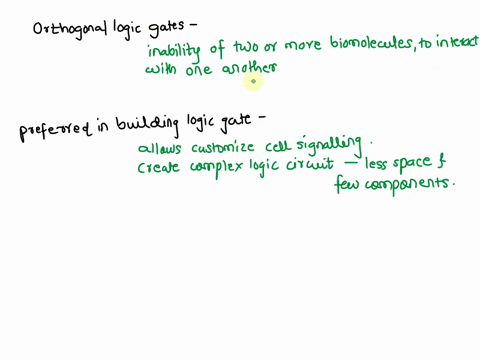 Orthogonal logic gates -
inability of two or more biomolecules, to interact
with one another
preferred in building logic gate -
allows customize cell signalling.
create complex logic circuit - less space &
few components.